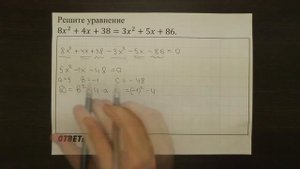 Решите уравнение
8x² + 4x + 38 = 3x² + 5x + 86.
8x² + 4x + 38 - 3x² - 5x - 86 = 0
5x² - 1x - 48 = 0
a = 5 b = -1 c = -48
D = b² - 4 · a = (-1)² - 4
ОТВЕТ: